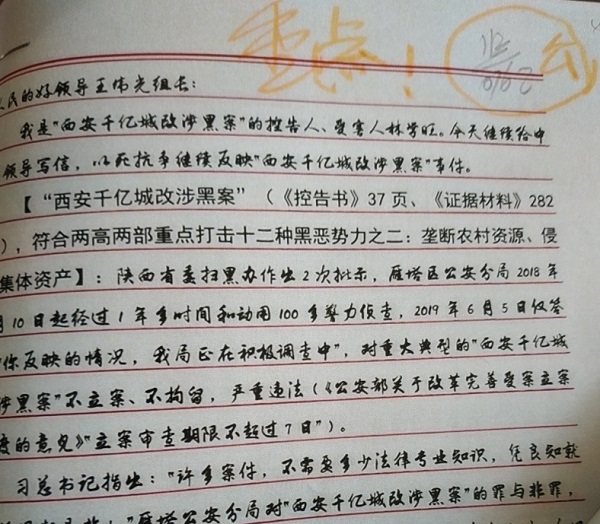 重点！
公
民的好领导王伟光组长：
我是"西安千亿城改涉黑案"的控告人、受害人林学旺。今天继续给中
领导写信，以死抗争继续反映"西安千亿城改涉黑案"事件。
【“西安千亿城改涉黑案”（《控告书》37 页、《证据材料》282
），符合两高两部重点打击十二种黑恶势力之二：垄断农村资源、侵
集体资产】：陕西省委扫黑办作出2次批示，雁塔区公安分局2018年
月10日起经过1年多时间和动用100多警力侦查，2019年6月5日仅答
你反映的情况，我局正在积极调查中"，对重大典型的"西安千亿城
涉黑案"不立案、不拘留，严重违法（《公安部关于改革完善受案立案
度的意见》"立案审查期限不超过7日"）。
习总书记指出："许多案件，不需要多少法律专业知识，凭良知就
"雁塔公安分局对"西安千亿城改涉黑案"的罪与非罪，